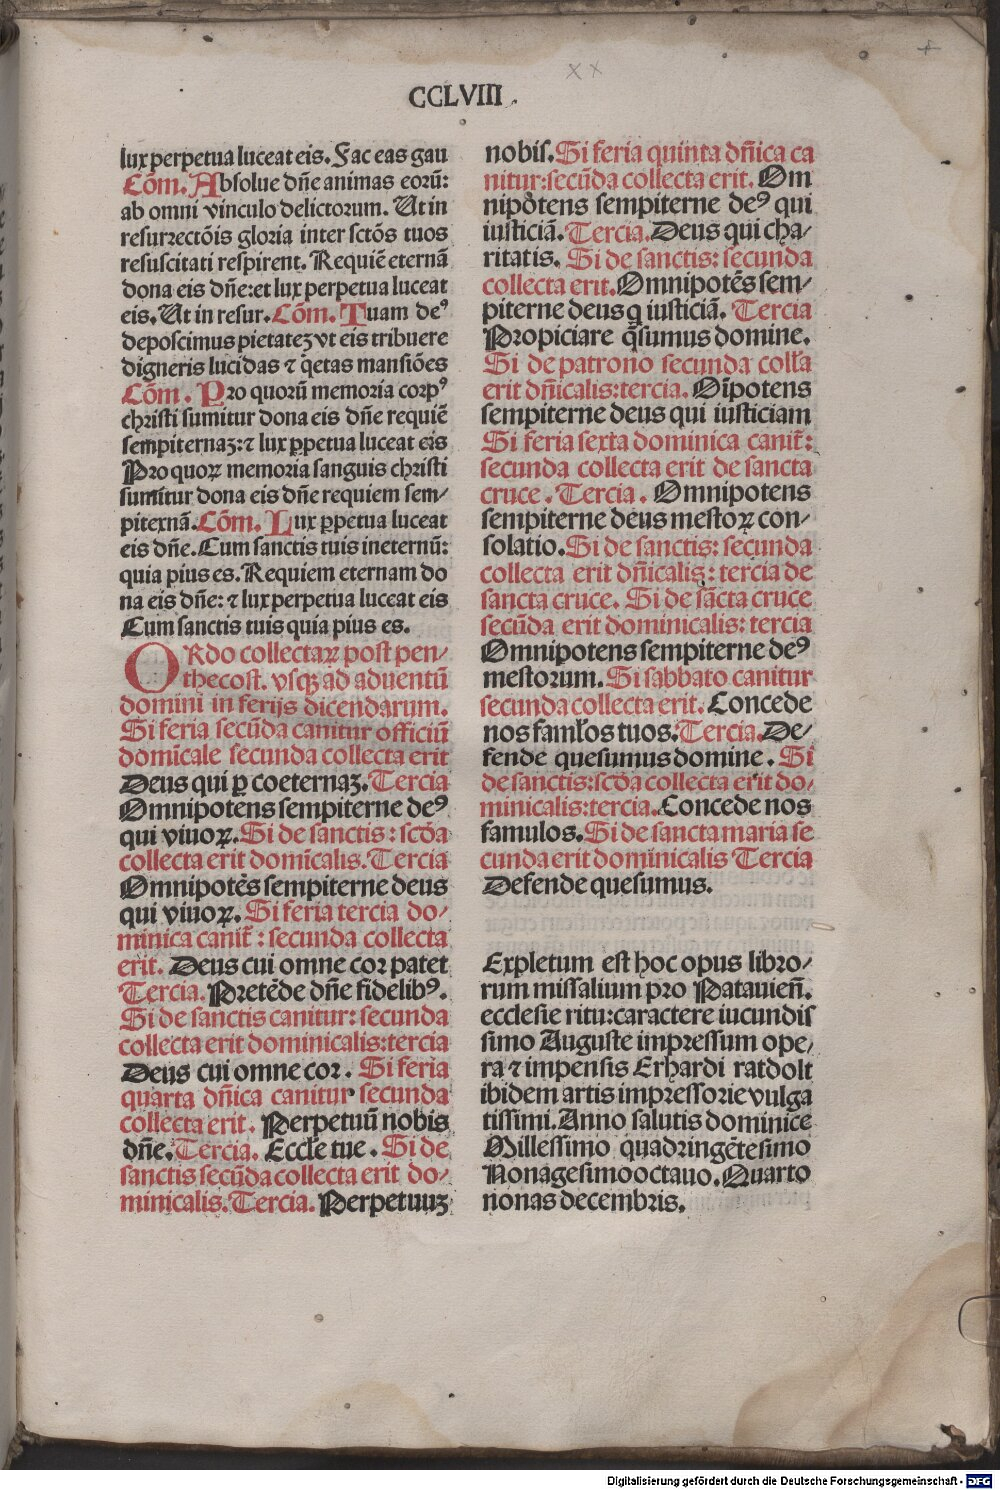 CCLVIII.
lux perpetua luceat eis. Fac eas gau
Cōm. Absolue dn̄e animas eorū:
ab omni vinculo delictorum. Ut in
resurrectōis gloria inter sctōs tuos
resuscitati respirent. Requiē eternā
dona eis dn̄e: et lux perpetua luceat
eis. Ut in resur. Cōm. Tuam deꝰ
deposcimus pietateȝ vt eis tribuere
digneris lucidas ⁊ q̄etas mansiōes
Cōm. Pro quorū memoria corpꝰ
christi sumitur dona eis dn̄e requiē
sempiternaȝ: ⁊ lux ꝑpetua luceat eis
Pro quoꝝ memoria sanguis christi
sumitur dona eis dn̄e requiem sem/
piternā. Cōm. Lux ꝑpetua luceat
eis dn̄e. Cum sanctis tuis ineternū:
quia pius es. Requiem eternam do
na eis dn̄e: ⁊ lux perpetua luceat eis
Cum sanctis tuis quia pius es.
ORdo collectaꝝ post pen/
thecost. vsqȝ ad aduentū
domini in ferijs dicendarum.
Si feria secūda canitur officiū
domīcale secunda collecta erit
Deus qui ꝑ coeternaȝ. Tercia
Omnipotens sempiterne deꝰ
qui viuoꝝ. Si de sanctis: scd̄a
collecta erit domīcalis. Tercia
Omnipotēs sempiterne deus
qui viuoꝝ. Si feria tercia do/
minica canit̄: secunda collecta
erit. Deus cui omne cor patet
Tercia. Pretēde dn̄e fidelibꝰ.
Si de sanctis canitur: secunda
collecta erit dominicalis: tercia
Deus cui omne cor. Si feria
quarta dn̄ica canitur secunda
collecta erit. Perpetuū nobis
dn̄e. Tercia. Eccl̄e tue. Si de
sanctis secūda collecta erit do/
minicalis. Tercia. Perpetuuȝ
nobis. Si feria quinta dn̄ica ca
nitur: secūda collecta erit. Om
nipōtens sempiterne deꝰ qui
iusticiā. Tercia. Deus qui cha/
ritatis. Si de sanctis: secunda
collecta erit. Omnipotēs sem/
piterne deus q iusticiā. Tercia
Propiciare q̄sumus domine.
Si de patrono secunda coll̄a
erit dn̄icalis: tercia. Oīpotens
sempiterne deus qui iusticiam
Si feria sexta dominica canit̄:
secunda collecta erit de sancta
cruce. Tercia. Omnipotens
sempiterne deus mestoꝝ con/
solatio. Si de sanctis: secunda
collecta erit dn̄icalis: tercia de
sancta cruce. Si de sācta cruce
secūda erit dominicalis: tercia
Omnipotens sempiterne deꝰ
mestorum. Si sabbato canitur
secunda collecta erit. Concede
nos faml̄os tuos: Tercia. De/
fende quesumus domine. Si
de sanctis: scd̄a collecta erit do/
minicalis: tercia. Concede nos
famulos. Si de sancta maria se
cunda erit dominicalis Tercia
Defende quesumus.
Expletum est hoc opus libro/
rum missalium pro Patauieñ.
ecclesie ritu: caractere iucundis
simo Auguste impressum ope/
ra ⁊ impensis Erhardi ratdolt
ibidem artis impressorie vulga
tissimi. Anno salutis dominice
Millessimo quadringētesimo
Nonagesimooctauo. Quarto
nonas decembris.
Digitalisierung gefördert durch die Deutsche Forschungsgemeinschaft - DFG